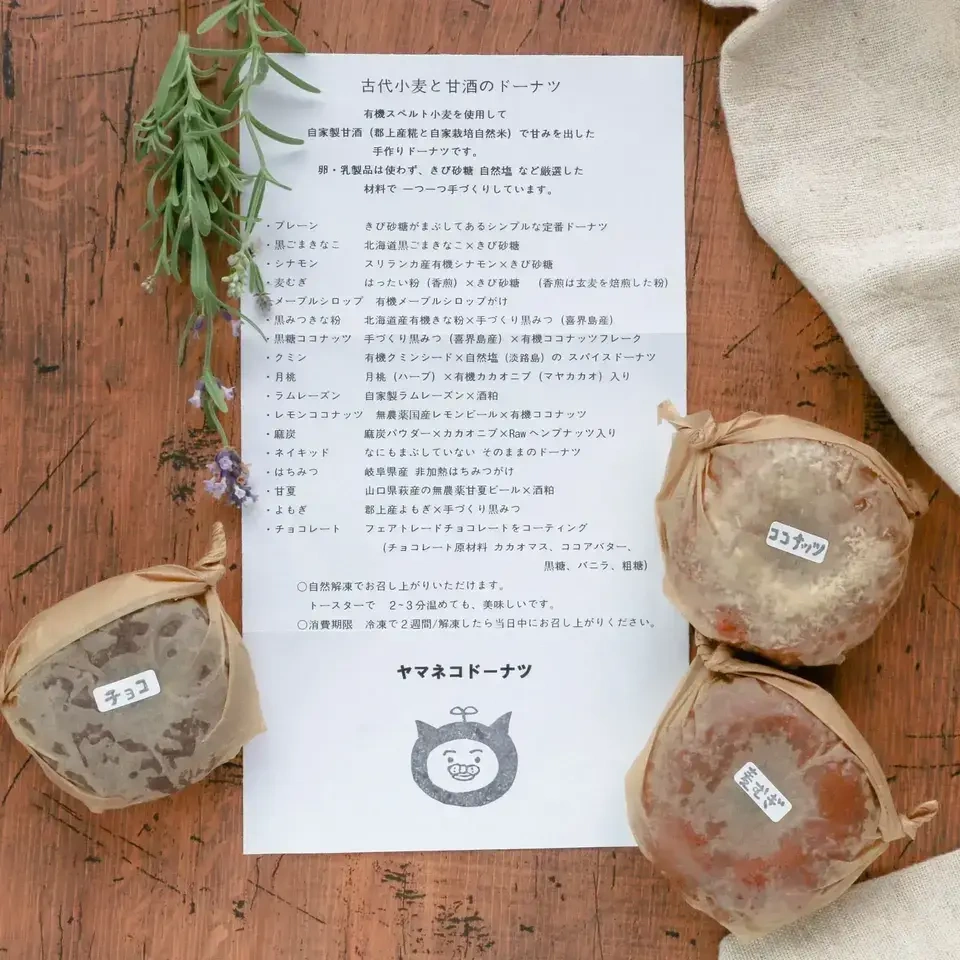 古代小麦と甘酒のドーナツ
有機スペルト小麦を使用して
自家製甘酒（郡上産糀と自家栽培自然米）で甘みを出した
手作りドーナツです。
卵・乳製品は使わず、きび砂糖 自然塩 など厳選した
材料で 一つ一つ手づくりしています。
・プレーン きび砂糖がまぶしてあるシンプルな定番ドーナツ
・黒ごまきなこ 北海道黒ごまきなこ×きび砂糖
・シナモン スリランカ産有機シナモン×きび砂糖
・麦むぎ はったい粉（香煎）×きび砂糖 （香煎は玄麦を焙煎した粉）
・メープルシロップ 有機メープルシロップがけ
・黒みつきな粉 北海道産有機きな粉×手づくり黒みつ（喜界島産）
・黒糖ココナッツ 手づくり黒みつ（喜界島産）×有機ココナッツフレーク
・クミン 有機クミンシード×自然塩（淡路島）の スパイスドーナツ
・月桃 月桃（ハーブ）×有機カカオニブ（マヤカカオ）入り
・ラムレーズン 自家製ラムレーズン×酒粕
・レモンココナッツ 無農薬国産レモンピール×有機ココナッツ
・麻炭 麻炭パウダー×カカオニブ×Rawヘンプナッツ入り
・ネイキッド なにもまぶしていない そのままのドーナツ
・はちみつ 岐阜県産 非加熱はちみつがけ
・甘夏 山口県萩産の無農薬甘夏ピール×酒粕
・よもぎ 郡上産よもぎ×手づくり黒みつ
・チョコレート フェアトレードチョコレートをコーティング
（チョコレート原材料 カカオマス、ココアバター、
黒糖、バニラ、粗糖）
○自然解凍でお召し上がりいただけます。
トースターで 2~3分温めても、美味しいです。
○消費期限 冷凍で2週間/解凍したら当日中にお召し上がりください。
ヤマネコドーナツ
チョコ
ココナッツ
麦むぎ